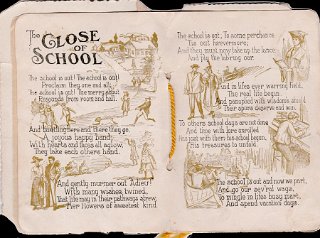 The CLOSE
OF
SCHOOL
The school is out! The school is out!
Proclaim they one and all;
The school is out! The merry shout
Resounds from room and hall.
And bustling here and there they go,
A joyous happy band;
With hearts and faces all aglow,
They take each others hand.
And gently murmur out "Adieu"!
With many wishes twined,
That life may in their pathways strew
Her flowers of sweetest kind.
The school is out, To some perchance
'tis out forevermore;
And they must now take up the lance
And ply the laboring oar.
And in life's ever warring field,
The real life begin.
And panoplied with wisdom's shield
Their spurs deserve and win.
To others school days are not done
And time with lore enrolled
Has just with them his school begun,
His treasures to unfold.
The school is out and now we part,
And go our several ways,
To mingle in life's busy mart,
And spend vacation days.